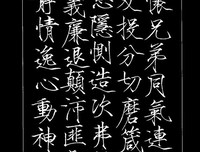 懷兄弟同氣連
友投分切磨箴
慈隱惻造次弗
義廉退顛沛匪
靜情逸心動神